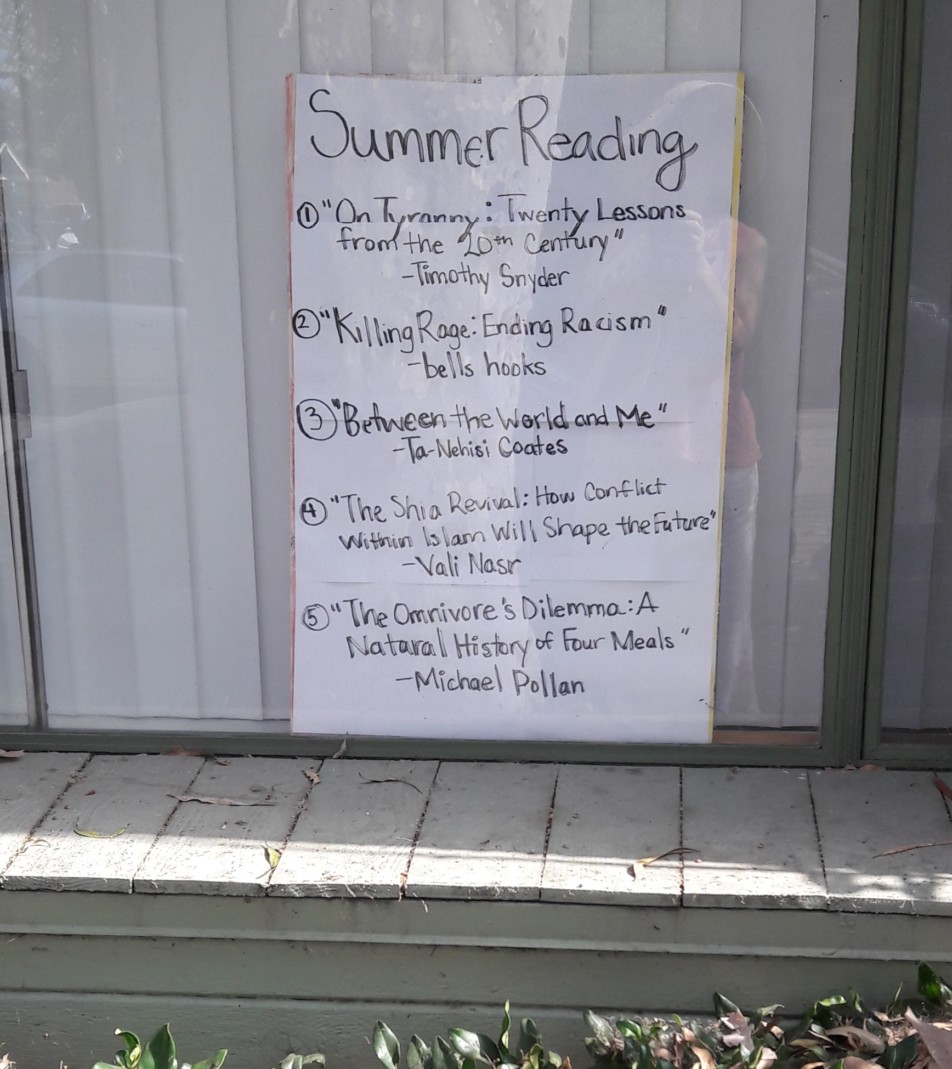 Summer Reading
① "On Tyranny: Twenty Lessons
from the 20th Century"
-Timothy Snyder
② "Killing Rage: Ending Racism"
-bells hooks
③ "Between the World and Me"
-Ta-Nehisi Coates
④ "The Shia Revival: How Conflict
Within Islam Will Shape the Future"
-Vali Nasr
⑤ "The Omnivore's Dilemma: A
Natural History of Four Meals"
-Michael Pollan